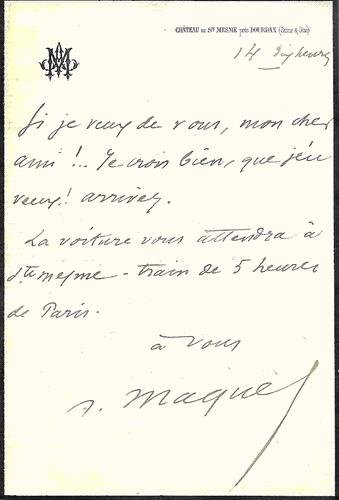 CHÂTEAU de Ste MESME près DOURDAN (Seine & Oise)
14
Si je veux de vous, mon cher
ami !.. Je crois bien, que j'en
veux! arrivez.
La voiture vous attendra à
Ste mesme - train de 5 heures
de Paris.
à vous
A. Maquet